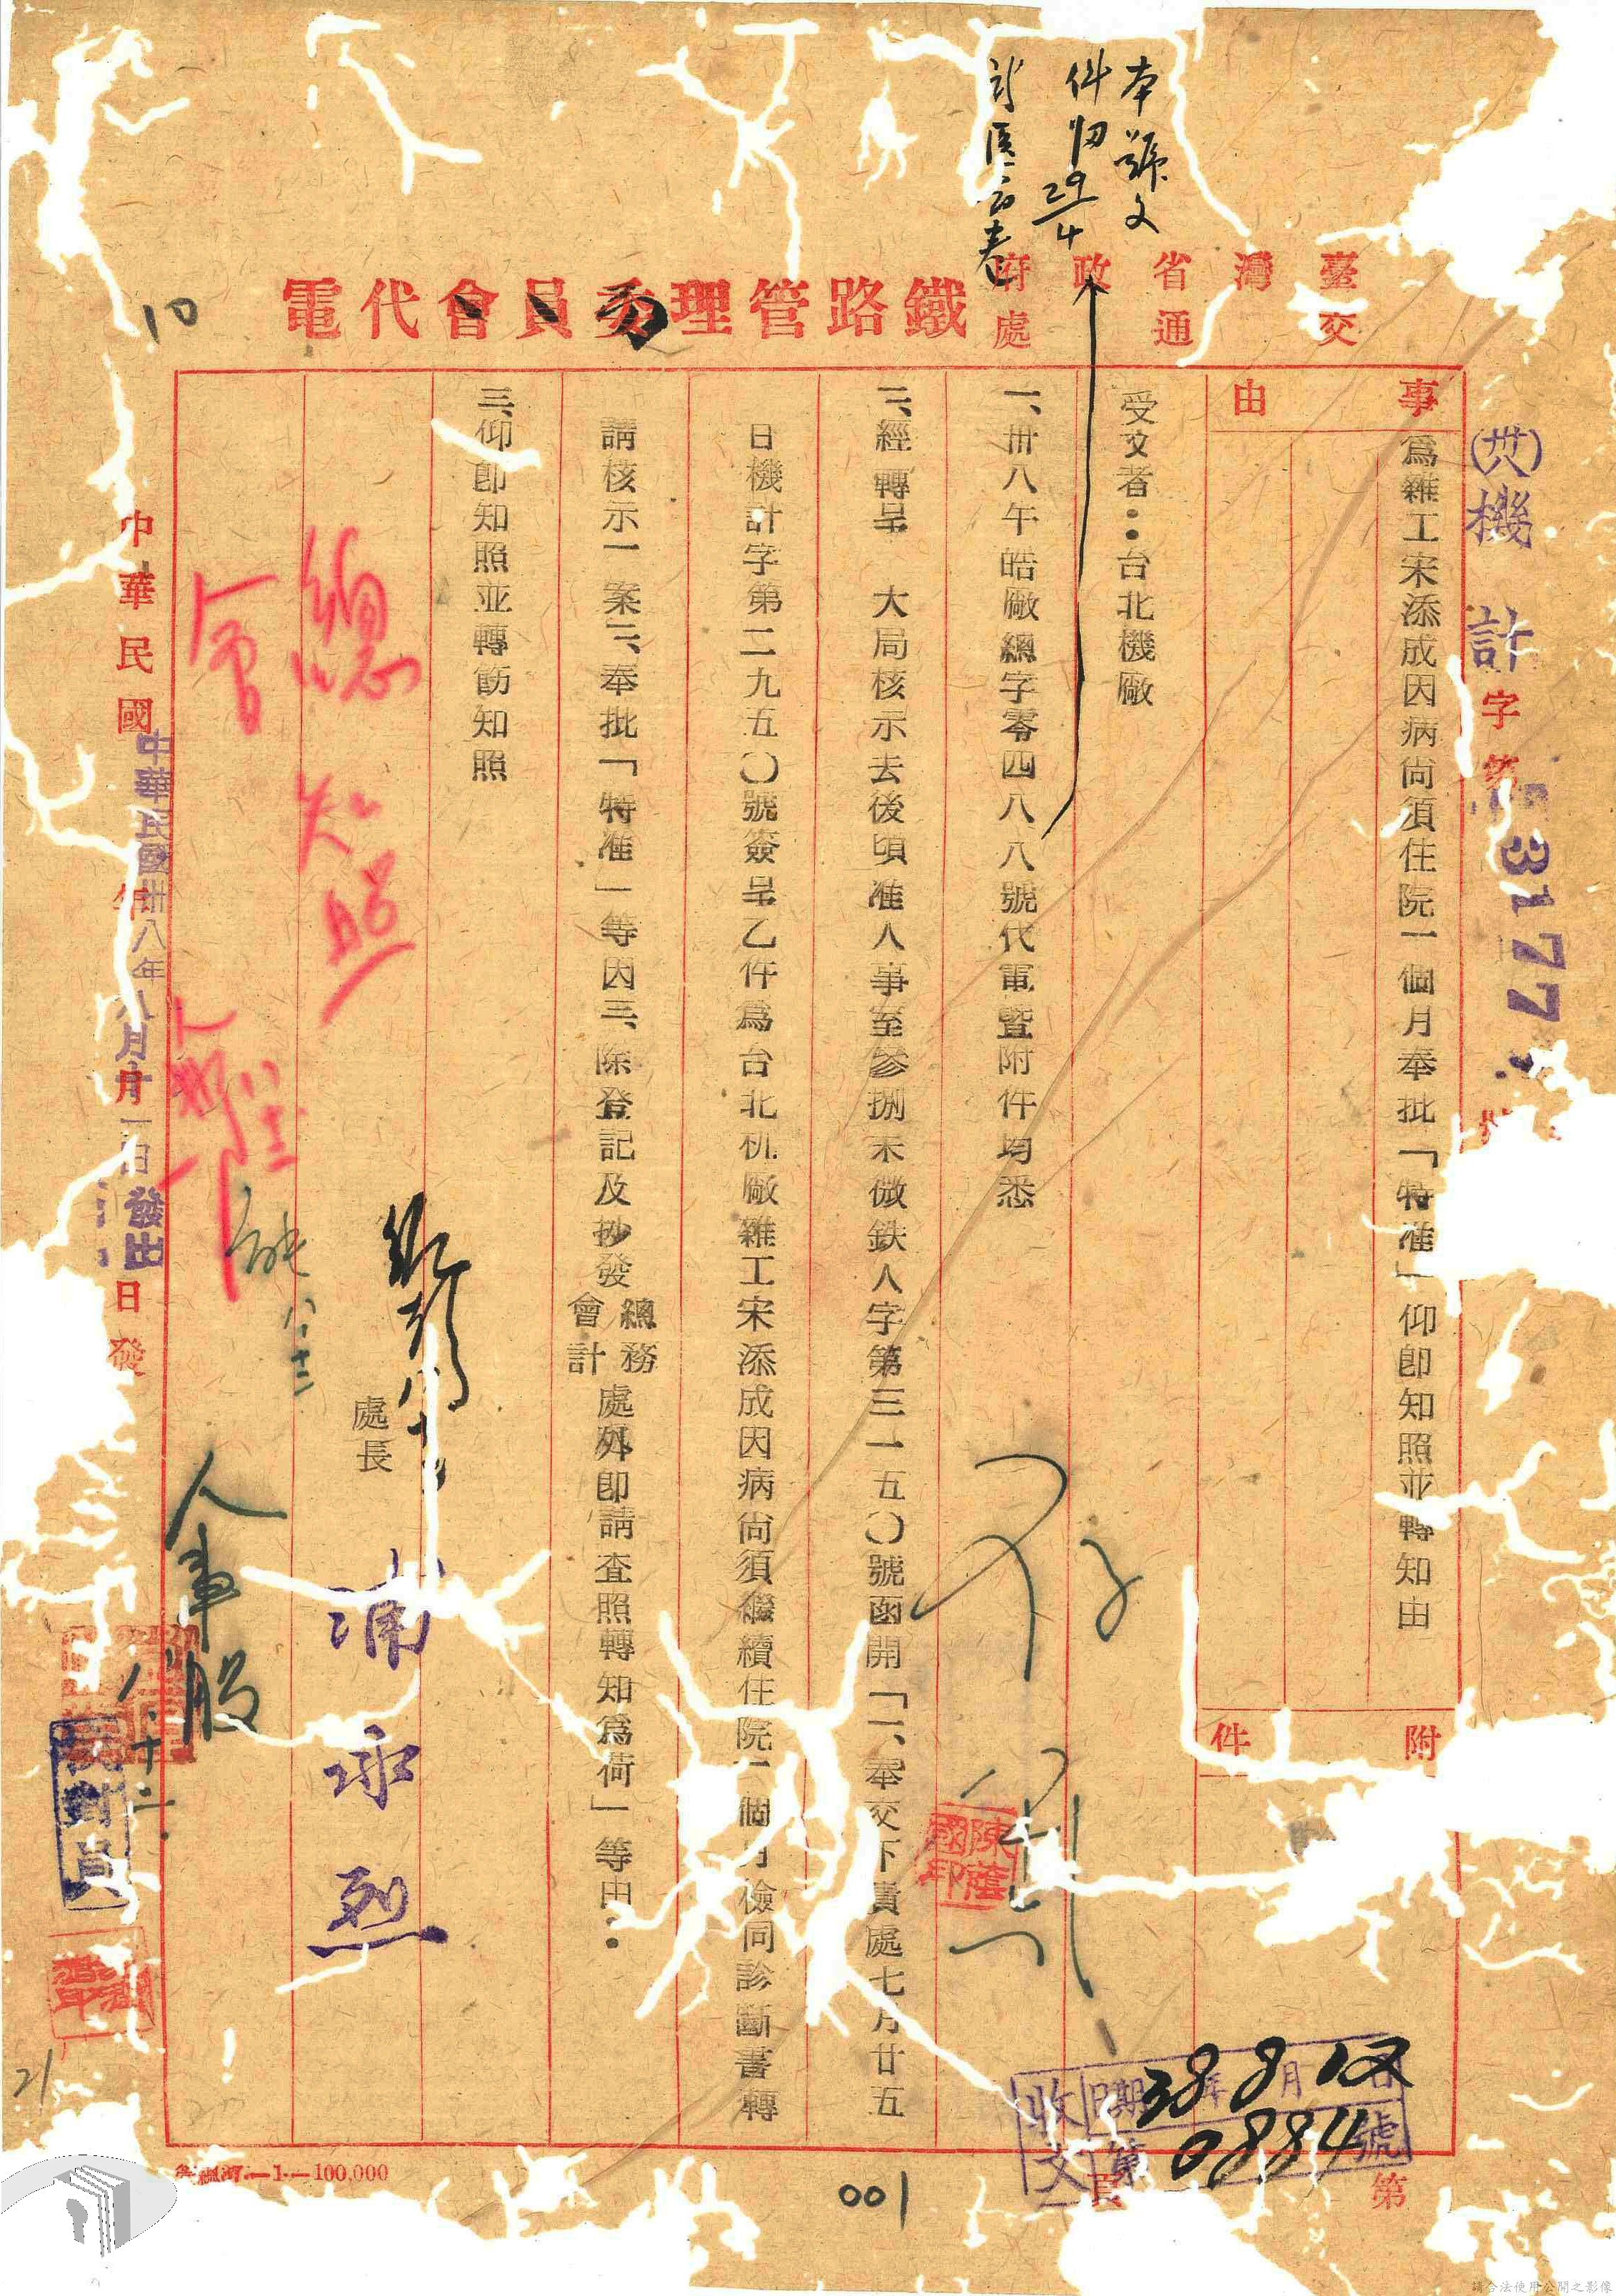 本號文
件归29/4
臺灣省政府
交通處
鐵路管理委員會代電
10
(卅八)機計字第3177
事由
為雜工宋添成因病尚須住院一個月奉批「特准」仰卽知照並轉知由
附件
受文者：台北機廠
一、卅八午皓廠總字零四八八號代電暨附件均悉
二、經轉呈　大局核示去後頃准人事室參捌未微鉄人字第三一五〇號函開「一、奉交下貴處七月廿五
日機計字第二九五〇號簽呈乙件為台北机廠雜工宋添成因病尚須繼續住院一個月檢同診斷書轉
請核示一案二、奉批「特准」等因三、除登記及抄發總務會計處外卽請査照轉知為荷」等由：
三、仰卽知照並轉飭知照
處長
總知照
人會
八十三
人事股
八、十二
中華民國年月日發
中華民國卅八年八月十一日發出
陳蔭國印
收文
日期38年8月12日
第0884號
第頁
001
21
1—100,000
請合法使用公開之影像